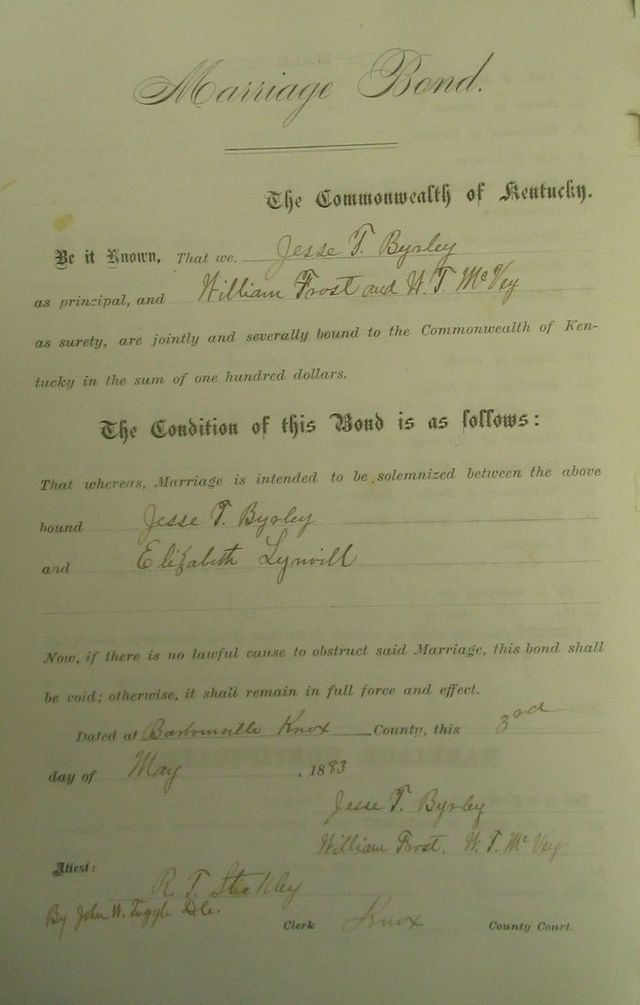 Marriage Bond.
The Commonwealth of Kentucky.
Be it Known, That we Jesse T. Byrley
as principal, and William Frost and W. T. McVey
as surety, are jointly and severally bound to the Commonwealth of Ken-
tucky in the sum of one hundred dollars.
The Condition of this Bond is as follows:
That whereas, Marriage is intended to be solemnized between the above
bound Jesse T. Byrley
and Elizabeth Lynvill
Now, if there is no lawful cause to obstruct said Marriage, this bond shall
be void; otherwise, it shall remain in full force and effect.
Dated at Barbourville Knox County, this 3rd
day of May, 1883
Jesse T. Byrley
William Frost. W. T. McVey
Attest:
R. T. Stickley
By John W. Tuggle D.C.
Clerk Knox County Court.